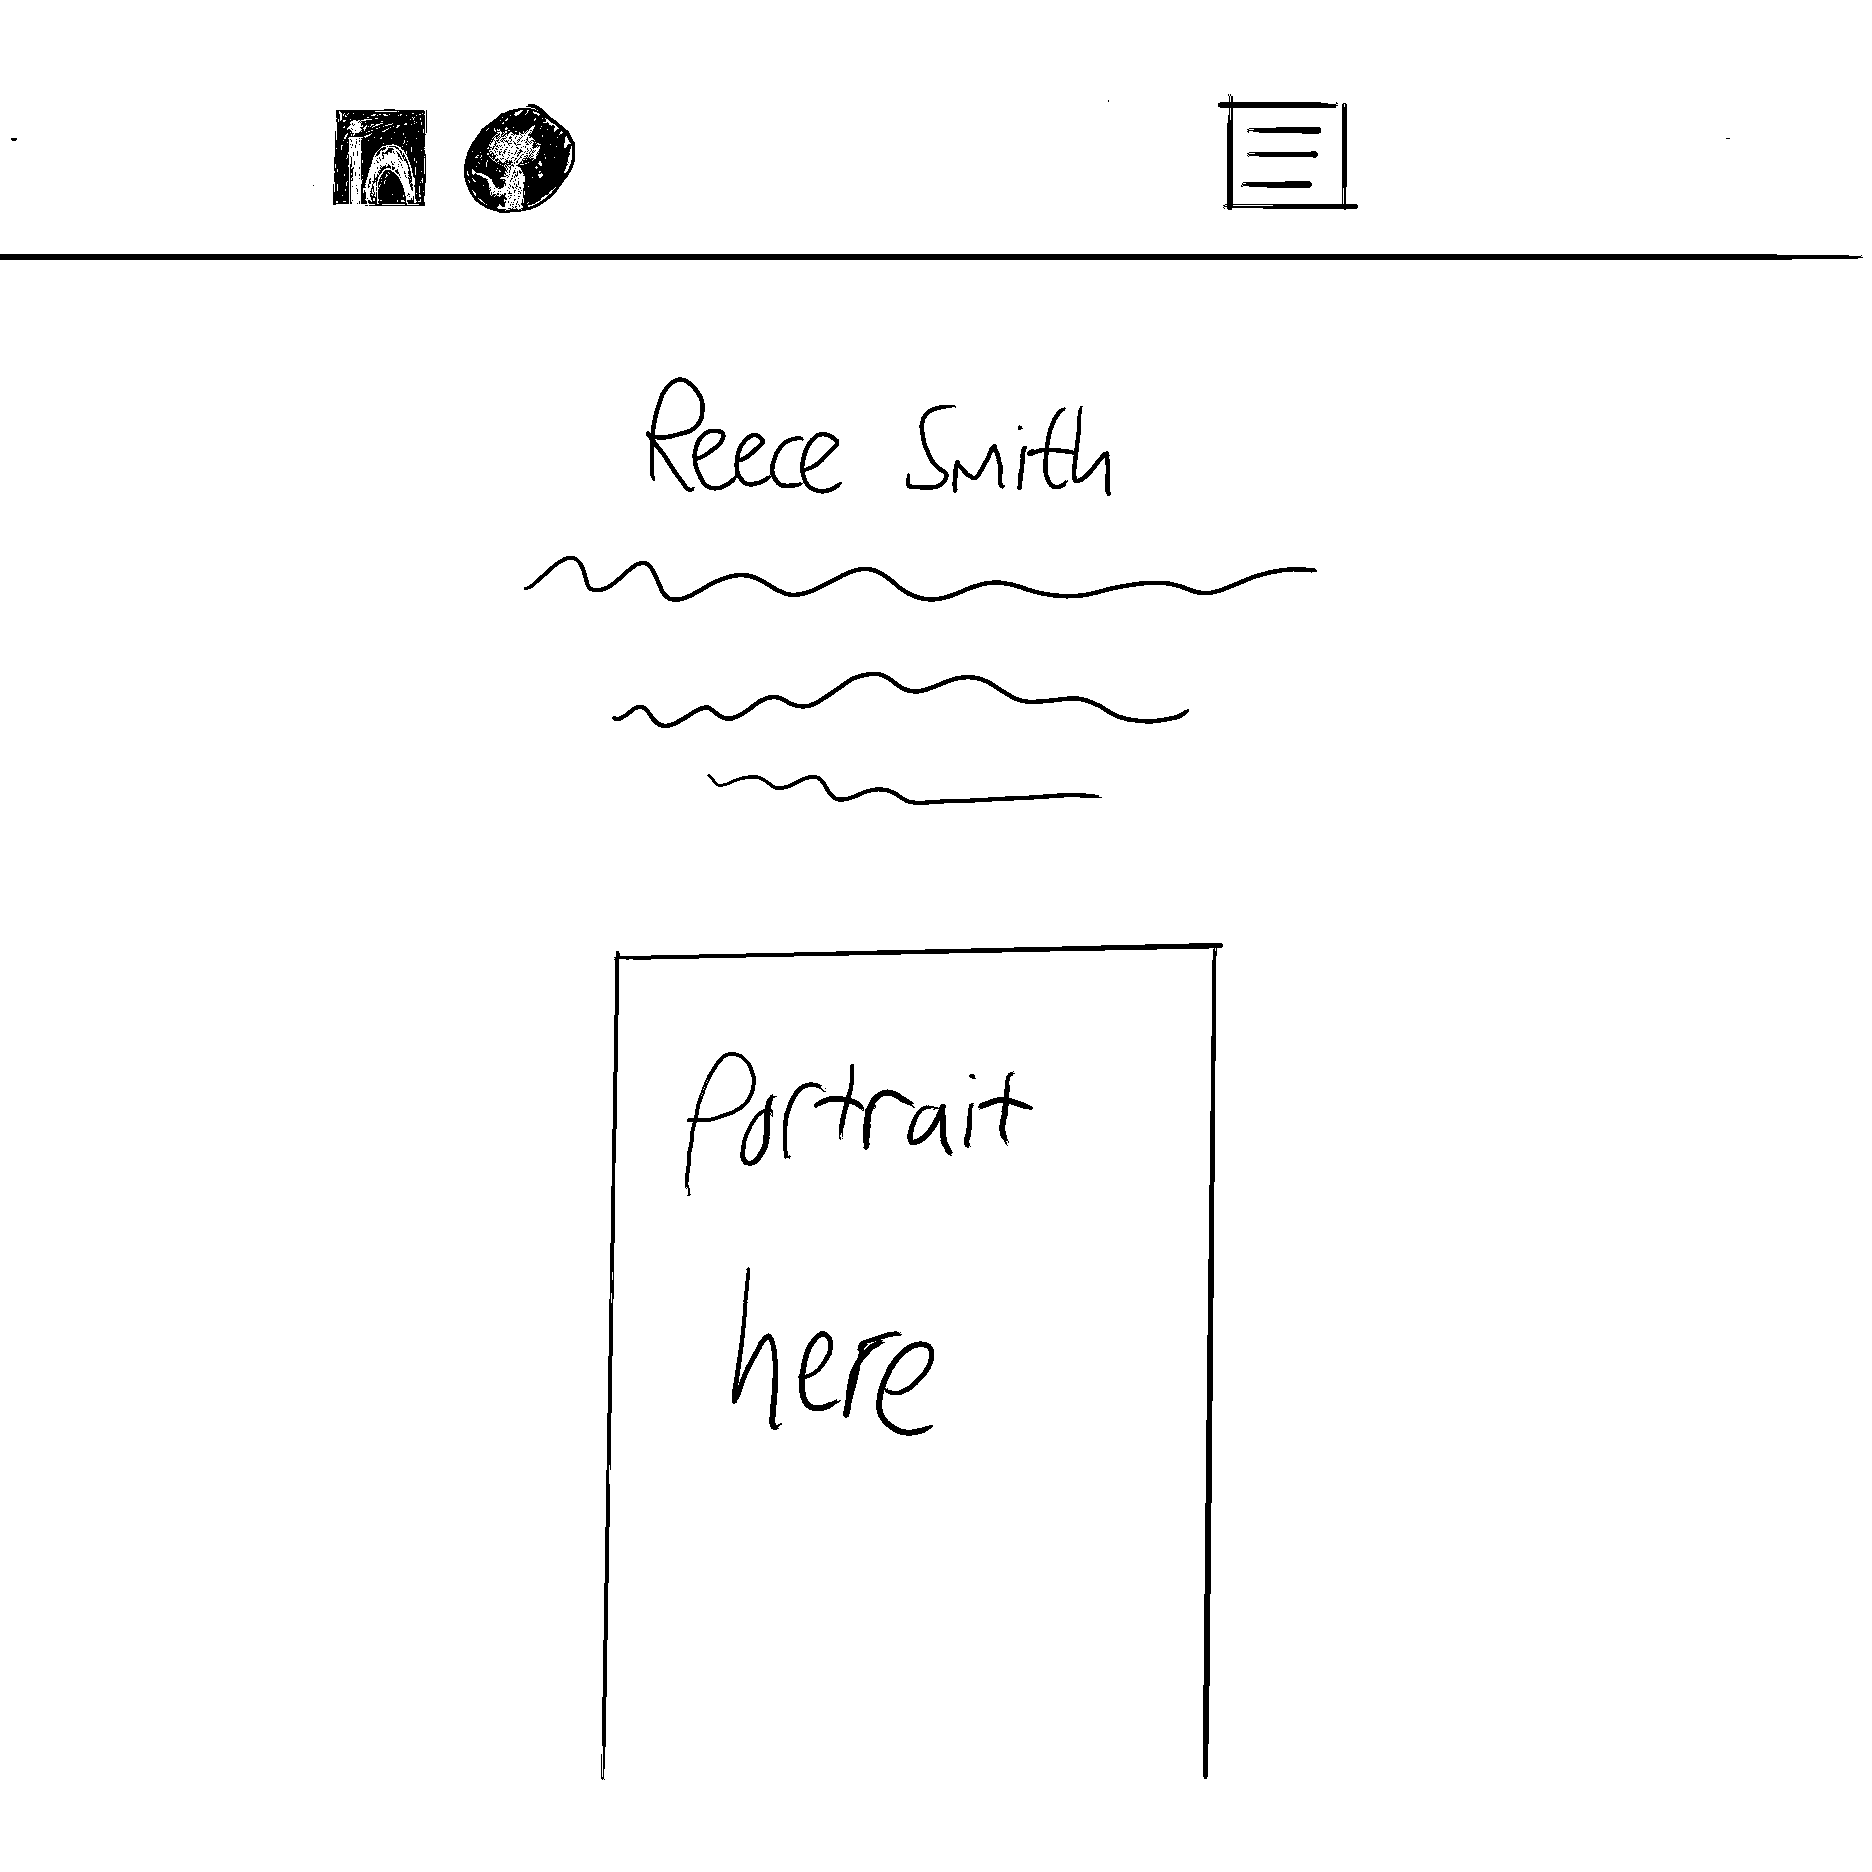 in
Reece Smith
Portrait
here